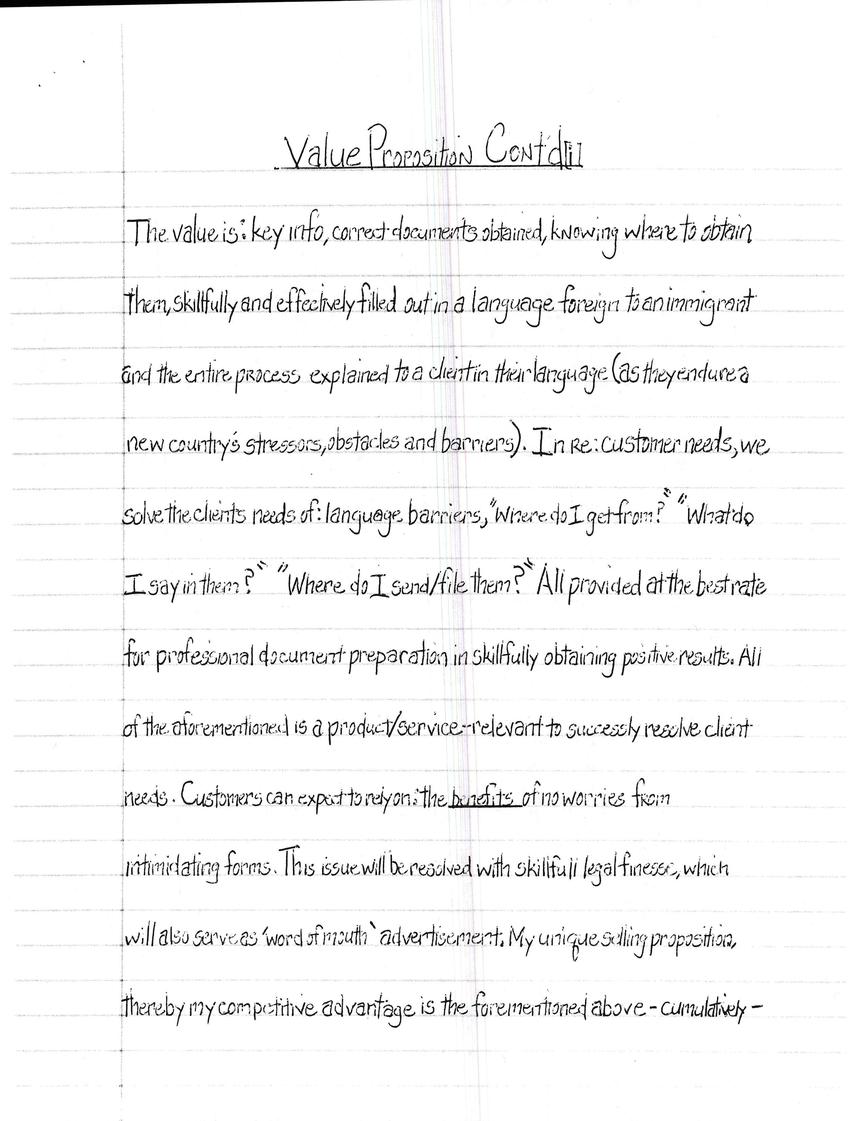 Value Proposition Cont'd[i]
The value is: key info, correct documents obtained, knowing where to obtain
them, skillfully and effectively filled out in a language foreign to an immigrant
and the entire process explained to a client in their language (as they endure a
new country's stressors, obstacles and barriers). In Re: customer needs, we
solve the clients needs of: language barriers, "Where do I get from?" "What do
I say in them?" "Where do I send/file them?" All provided at the best rate
for professional document preparation in skillfully obtaining positive results. All
of the aforementioned is a product/service-relevant to successly resolve client
needs. Customers can expect to rely on: the benefits of no worries from
intimidating forms. This issue will be resolved with skillfull legal finesse, which
will also serve as 'word of mouth' advertisement. My unique selling proposition,
thereby my competitive advantage is the forementioned above - cumulatively -